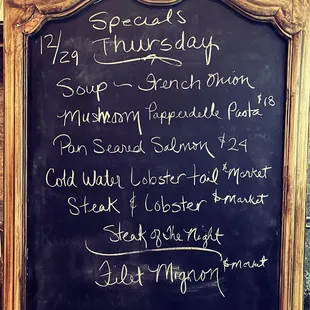 Specials
12/29 Thursday
Soup ~ French Onion
Mushroom Papperdelle Pasta $18
Pan Seared Salmon $24
Cold Water Lobster tail $Market
Steak & Lobster $Market
Steak of The Night
Filet Mignon $Market